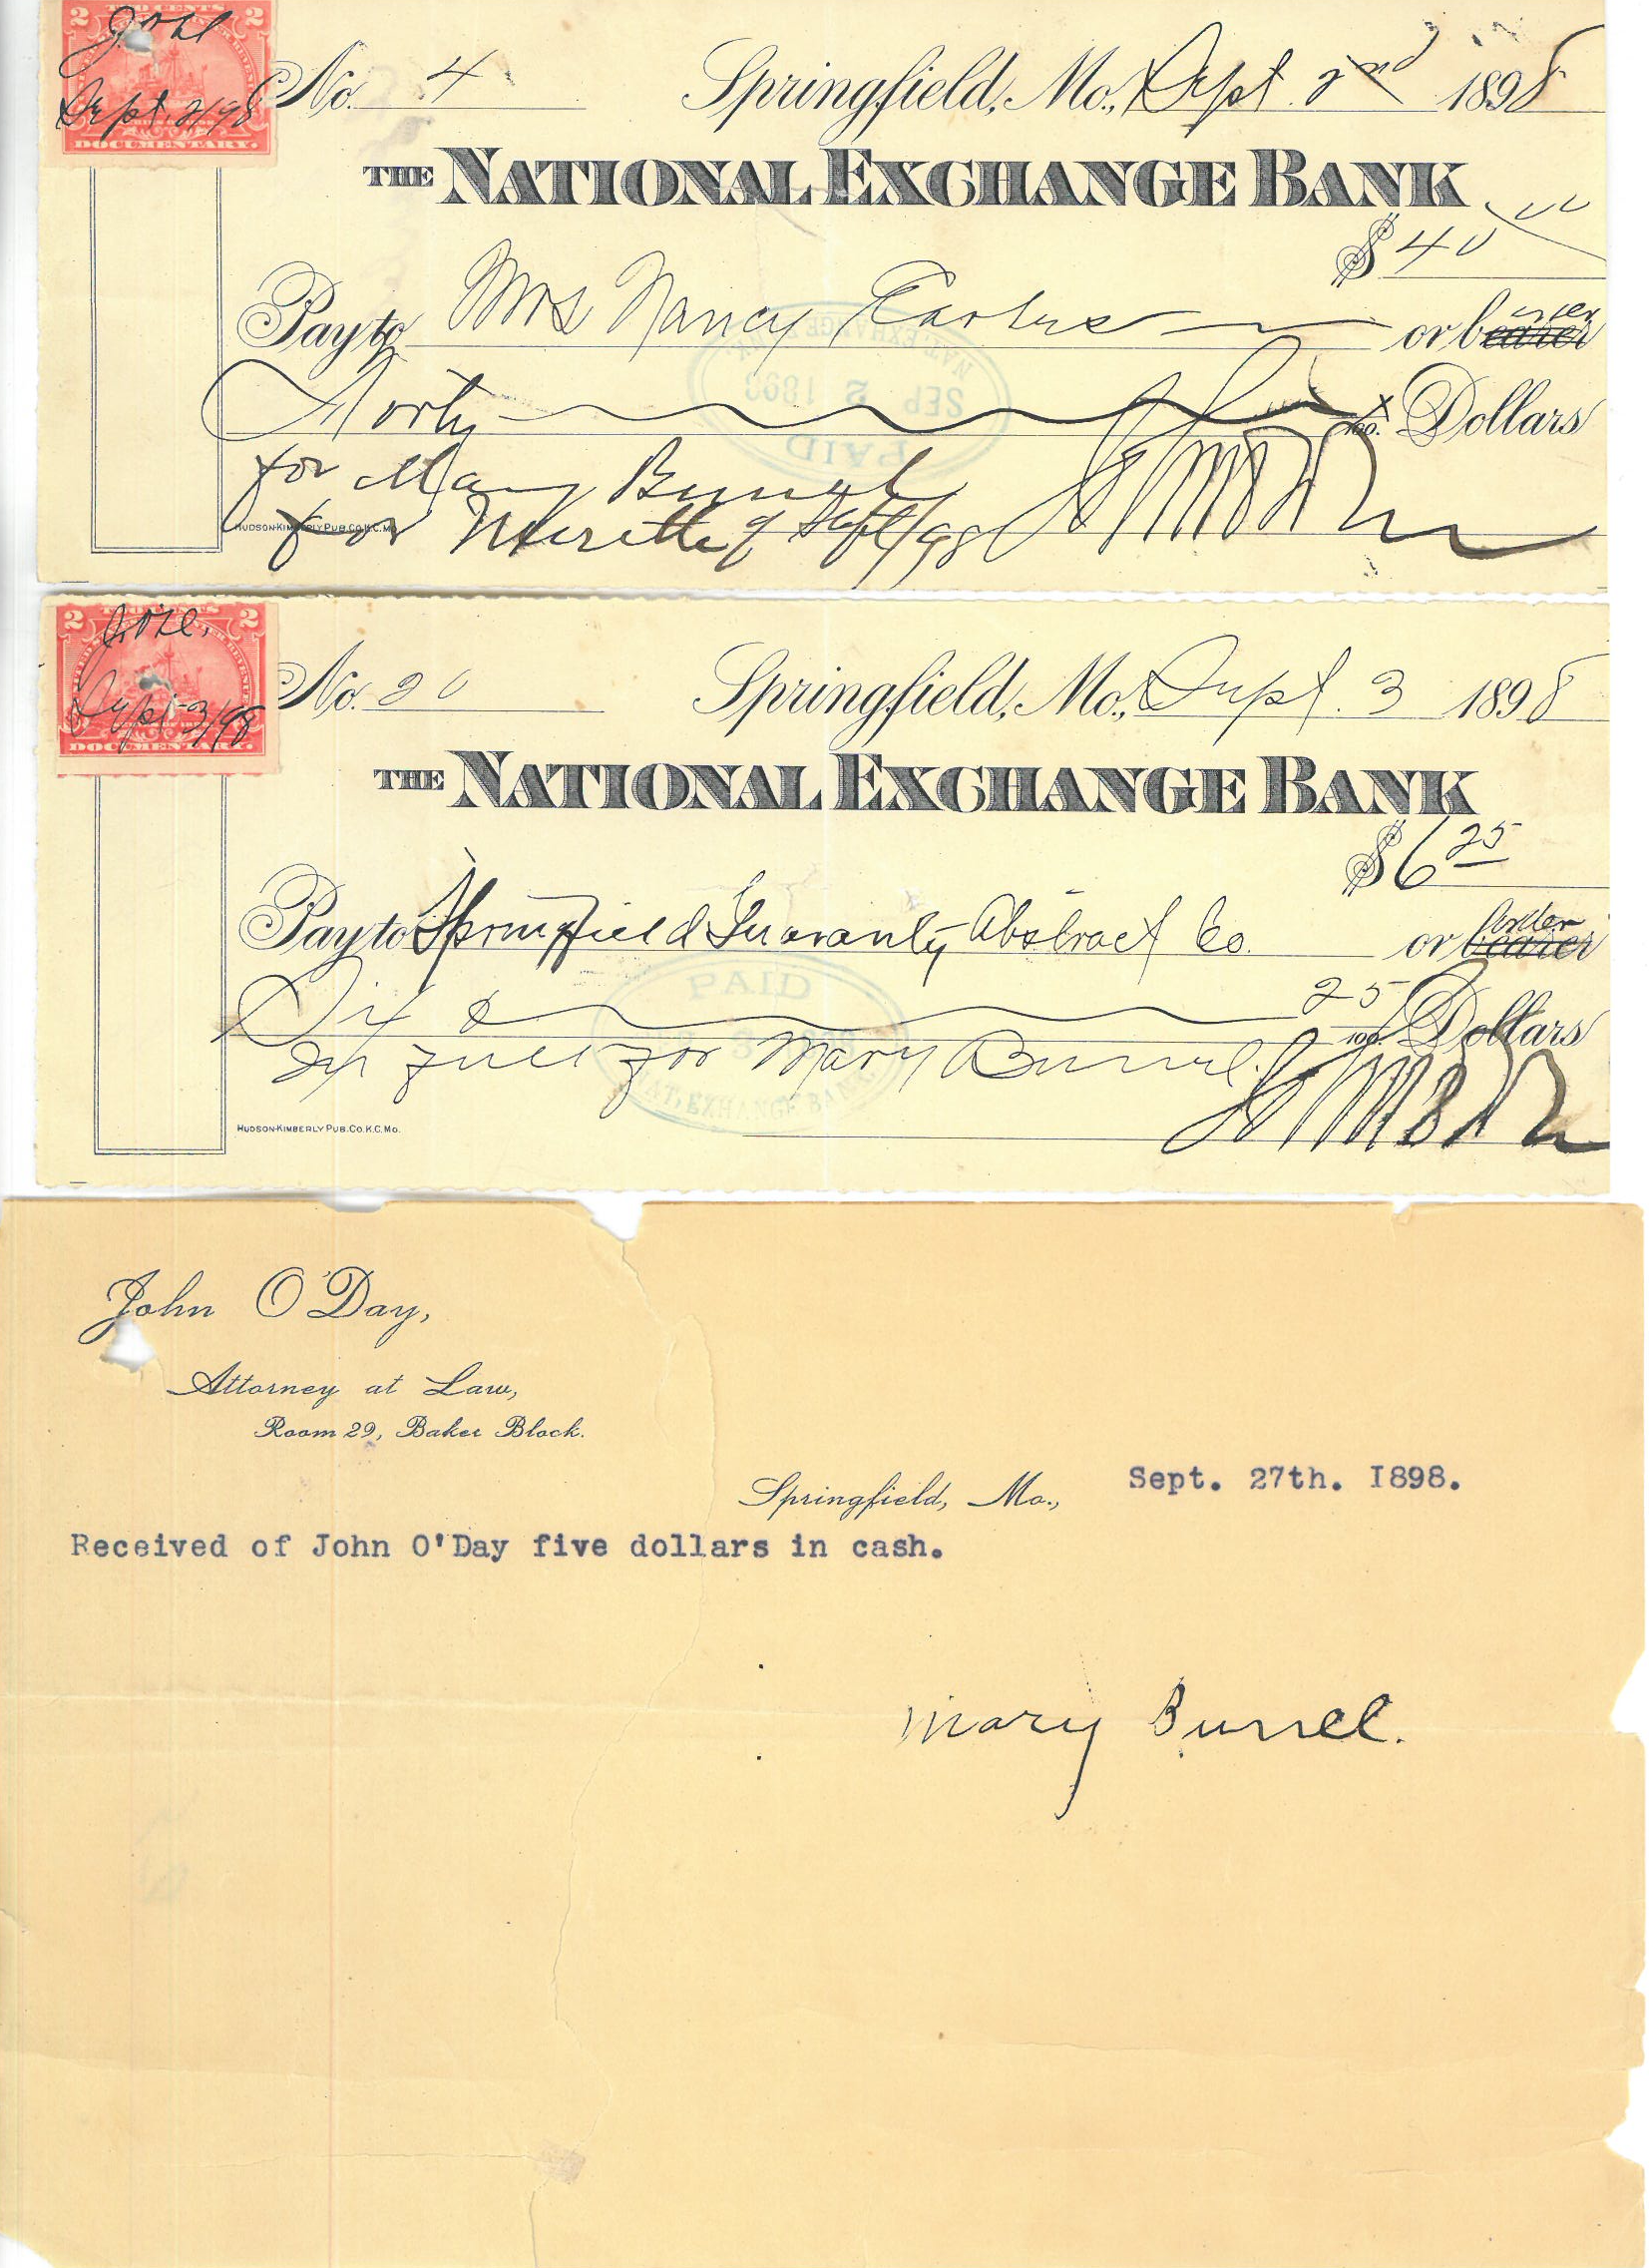 TWO CENTS
2 2
Sept. 2/98
DOCUMENTARY.
No. 4 Springfield, Mo., Sept. 2nd 1898
THE NATIONAL EXCHANGE BANK
$40 00
Pay to Mrs Nancy or bearer order
Forty x/100. Dollars
PAID
SEP 2 1898
NAT. EXCHANGE
for Mary Burrel
for of Sept/98
HUDSON-KIMBERLY PUB. CO. K.C. MO.
TWO CENTS
2 2
Sept 3/98
DOCUMENTARY.
No. 20 Springfield, Mo., Sept. 3 1898
THE NATIONAL EXCHANGE BANK
$6 25
Pay to Springfield Guaranty Abstract Co. or bearer order
Six & 25/100. Dollars
PAID
NAT. EXHANGE BANK
In full for Mary Burrel.
HUDSON-KIMBERLY PUB. CO. K.C. MO.
John O'Day,
Attorney at Law,
Room 29, Baker Block.
Springfield, Mo., Sept. 27th. I898.
Received of John O'Day five dollars in cash.
Mary Burrel.